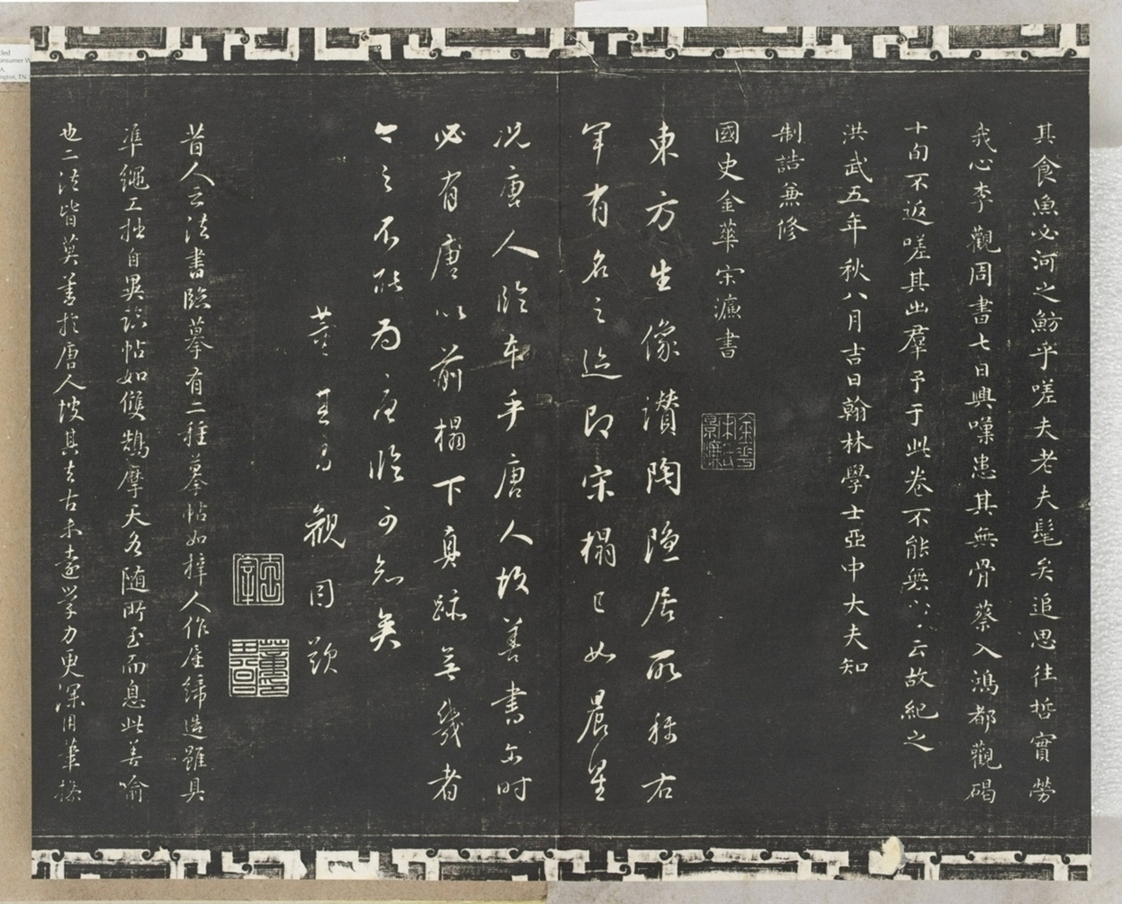 其食魚必河之魴乎嗟夫老夫髦矣追思往哲實勞
我心李觀周書七日興嘆患其無骨蔡入鴻都觀碣
十旬不返嗟其出群予于此卷不能無以云故紀之
洪武五年秋八月吉日翰林學士亞中大夫知
制誥兼修
國史金華宋濂書
金華宋氏景濂
東方生像讚陶隱居所稱右
軍有名之迹即宋榻已如晨星
況唐人臨本乎唐人坂善書尔時
必有唐以前榻下真跡無幾者
今之不能為唐臨可知矣
董其昌觀因題
太史
董其昌印
昔人云法書臨摹有二種摹帖如梓人作屋締造雖具
準繩工拙自異臨帖如雙鵠摩天各隨所至而息此善喻
也二法皆莫善於唐人坂其去古未遠學力更深用筆